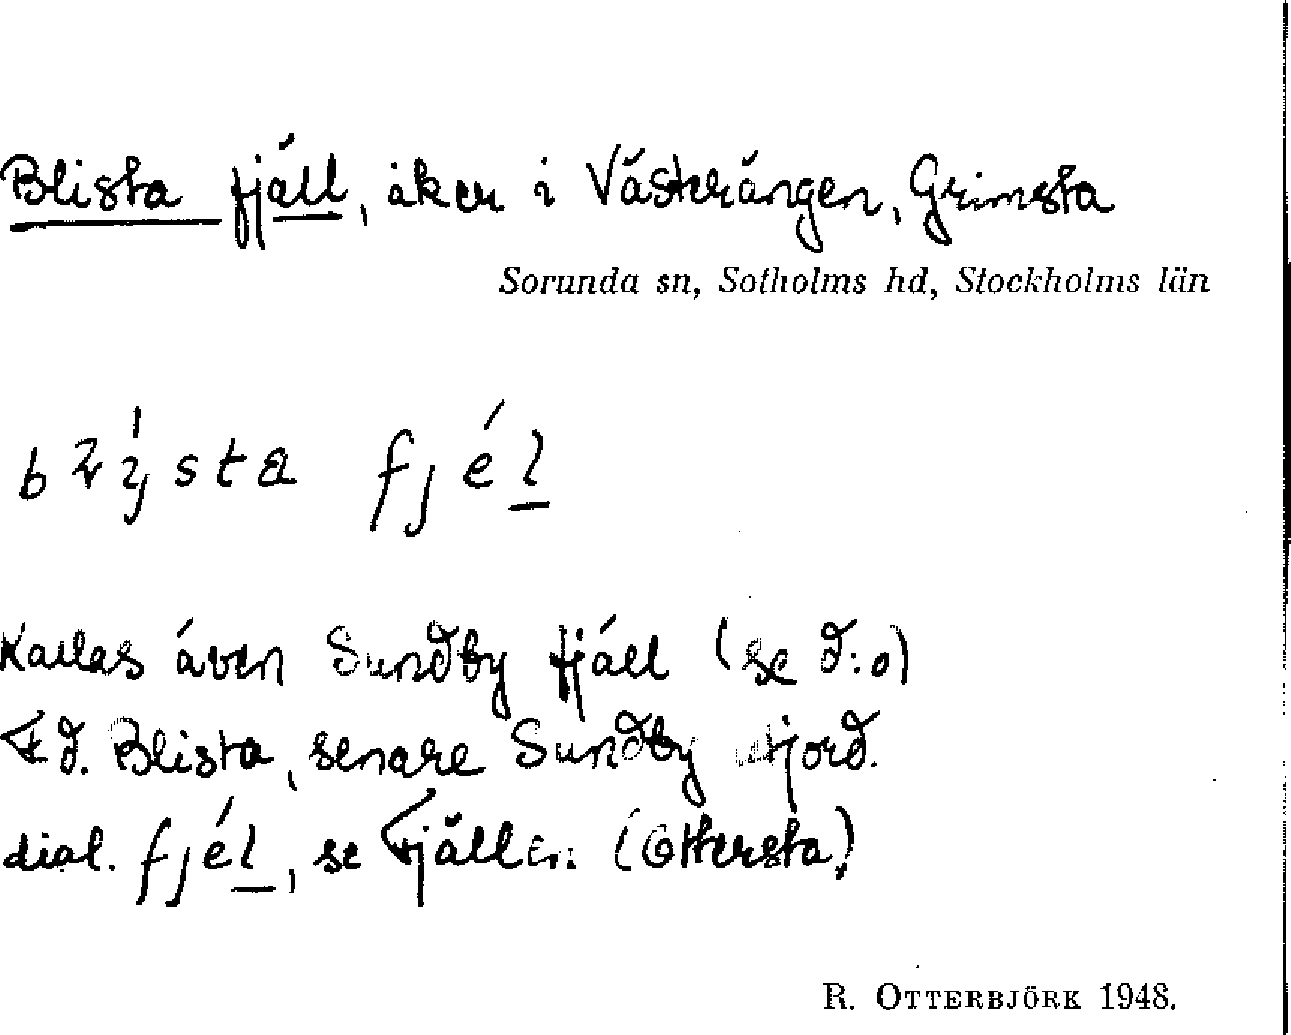 Blista fjäll, åker i Västerängen, Grimsta
Sorunda sn, Sotholms hd, Stockholms län
sta fjél
Kallas även Sundby fjäll (se d:o)
F.d. Blista, senare Sundby utjord.
dial. fjél, se Fjällen (Ottersta)
R. OTTERBJÖRK 1948.